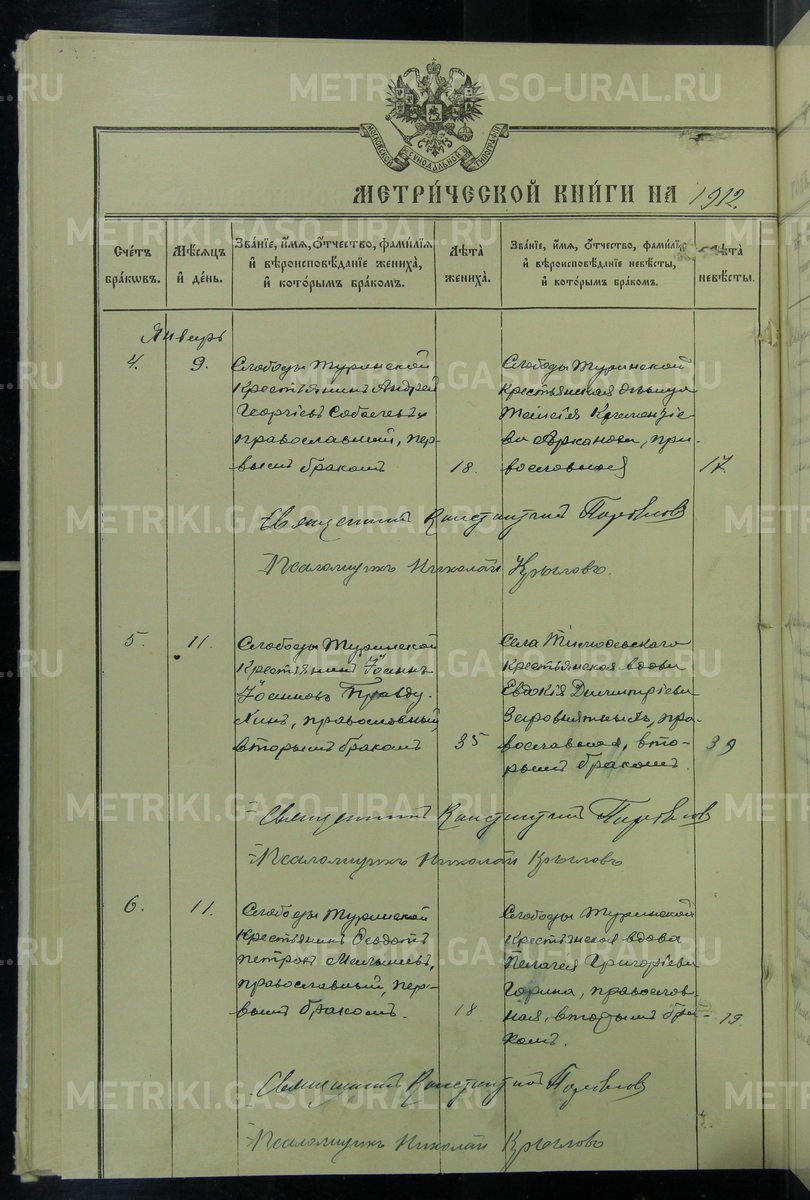 МОСКОВСКОЙ СУНОДАЛЬНОЙ ТИПОГРАФІИ
МЕТРИ́ЧЕСКОЙ КНИ́ГИ НА 1912.
Сче́тъ бра́кωвъ.
Мѣ́сяцъ и҆ де́нь.
Зва́нїе, и҆́мя, ѻ҆́тчество, фами́лїя и҆ вѣроисповѣ́данїе жениха̀, и҆ кото́рымъ бра́комъ.
Лѣ́та жениха̀.
Зва́нїе, и҆́мя, ѻ҆́тчество, фами́лїя и҆ вѣроисповѣ́данїе невѣ́сты, и҆ кото́рымъ бра́комъ.
Лѣ́та невѣ́сты.
Январь
4.
9.
Слободы Туринской
крестьянинъ Андрей
Георгіевъ
православный, пер-
вымъ бракомъ
18.
Слободы Туринской
крестьянская дѣвица
православная
17.
Священникъ Константинъ
Псаломщикъ Николай Крыловъ.
5.
11.
Слободы Туринской
крестьянинъ Іоаннъ
Іоанновъ Правду-
хинъ, православный,
вторымъ бракомъ
35
Села
крестьянская вдова
Евдокія Димитріева
пра-
вославная, вто-
рымъ бракомъ.
39
Священникъ Константинъ
Псаломщикъ Николай Крыловъ
6.
11.
Слободы Туринской
крестьянинъ Ѳеодотъ
Петровъ Малышевъ,
православный, пер-
вымъ бракомъ.
18
Слободы Туринской
крестьянская вдова
Пелагея Григоріева
Горина, православ-
ная, вторымъ бра-
комъ.
19
Священникъ Константинъ
Псаломщикъ Николай Крыловъ
METRIKI.GASO-URAL.RU